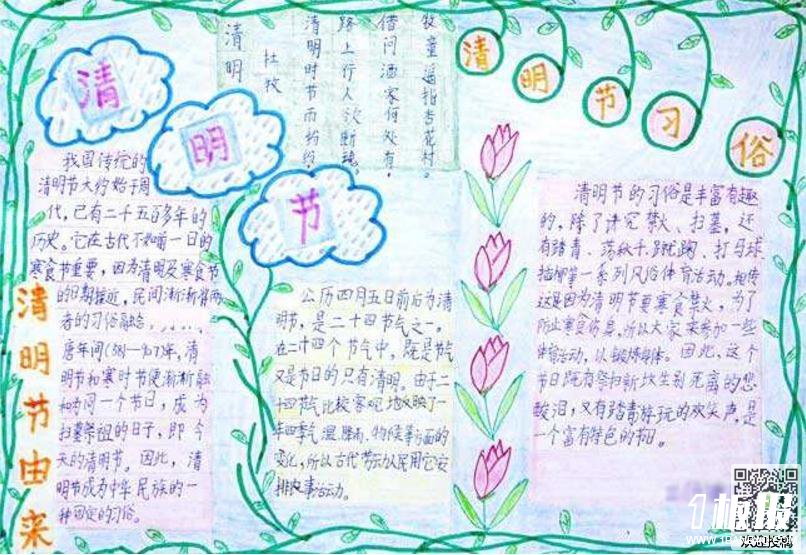 清明节
清明
杜牧
清明时节雨纷纷,
路上行人欲断魂。
借问酒家何处有,
牧童遥指杏花村。
清明节习俗
清明节由来
我国传统的
清明节大约始于周
代,已有二千五百多年的
历史。它在古代不如前一日的
寒食节重要,因为清明及寒食节
的日期接近,民间渐渐将两
者的习俗融合
唐年间(581—907年,清
明节和寒时节便渐渐融
和为同一个节日,成为
扫墓祭祖的日子,即今
天的清明节。因此,清
明节成为中华民族的一
种固定的习俗。
公历四月五日前后为清
明节,是二十四节气之一。
在二十四个节气中,既是节气
又是节日的只有清明。由于二
十四节气比较客观地反映了一
年四季气温、降雨、物候等方面的
变化,所以古代劳动人民用它安
排农事活动。
清明节的习俗是丰富有趣
的,除了讲究禁火、扫墓,还
有踏青、荡秋千、蹴鞠、打马球、
插柳等一系列风俗体育活动。相传
这是因为清明节要寒食禁火,为了
防止寒食伤身,所以大家来参加一些
体育活动,以锻炼身体。因此,这个
节日既有祭扫新坟生别死离的悲
酸泪,又有踏青游玩的欢笑声,是
一个富有特色的节日。
1板报
欢迎投稿